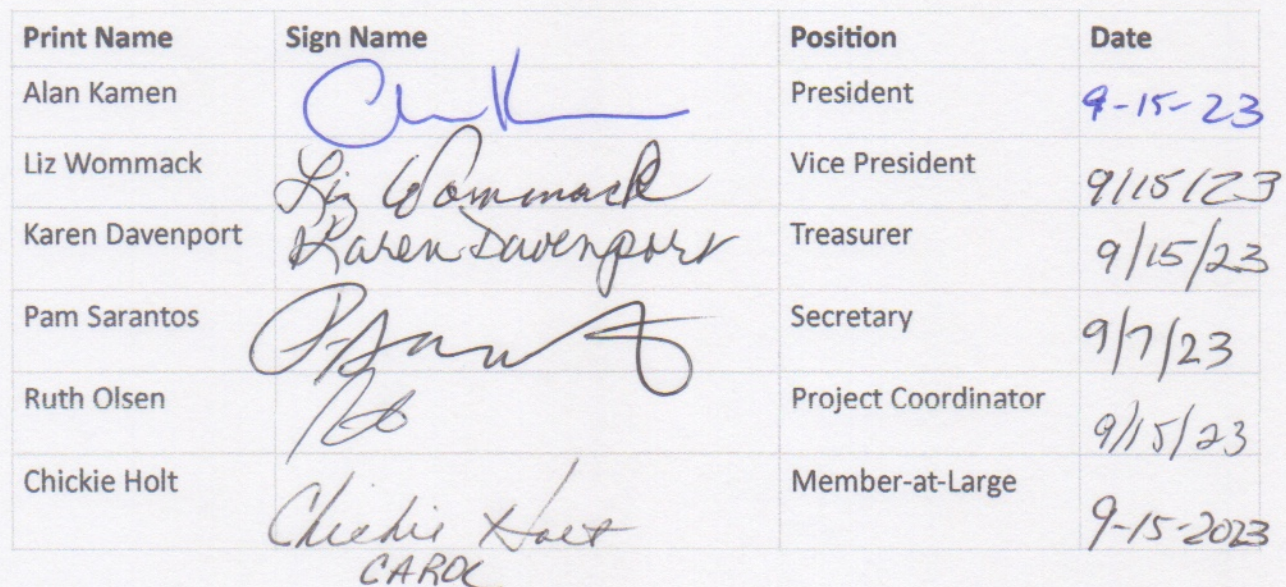 Print Name Sign Name Position Date
Alan Kamen President 9-15-23
Liz Wommack Liz Wommack Vice President 9/15/23
Karen Davenport Karen Davenport Treasurer 9/15/23
Pam Sarantos Secretary 9/7/23
Ruth Olsen Project Coordinator 9/15/23
Chickie Holt Chickie Holt Member-at-Large 9-15-2023
CAROL